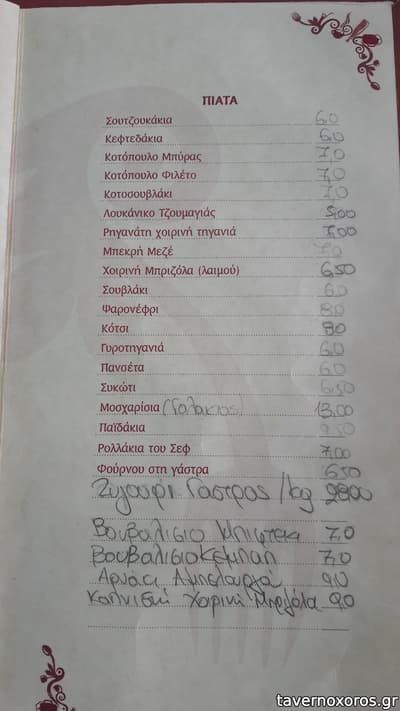 ΠΙΑΤΑ
Σουτζουκάκια 6,0
Κεφτεδάκια 6,0
Κοτόπουλο Μπύρας 7,0
Κοτόπουλο Φιλέτο 7,0
Κοτοσουβλάκι 7,0
Λουκάνικο Τζουμαγιάς 5,00
Ρηγανάτη χοιρινή τηγανιά 7,00
Μπεκρή Μεζέ 7,0
Χοιρινή Μπριζόλα (λαιμού) 6,50
Σουβλάκι 6,0
Ψαρονέφρι 8,0
Κότσι 9,0
Γυροτηγανιά 6,0
Πανσέτα 6,0
Συκώτι 6,50
Μοσχαρίσια (Γαλακτος) 13,00
Παϊδάκια 9,50
Ρολλάκια του Σεφ 7,00
Φούρνου στη γάστρα 6,50
Ζυγουρι Γαστρας /kg
Βουβαλισιο Μπιφτεκι 7,0
Βουβαλισιο Κεμπαπ 7,0
Αρνάκι Αμπελουργού 9,0
Καπνιστή Χοιρινή Μπριζόλα 9,0
tavernoxoros.gr